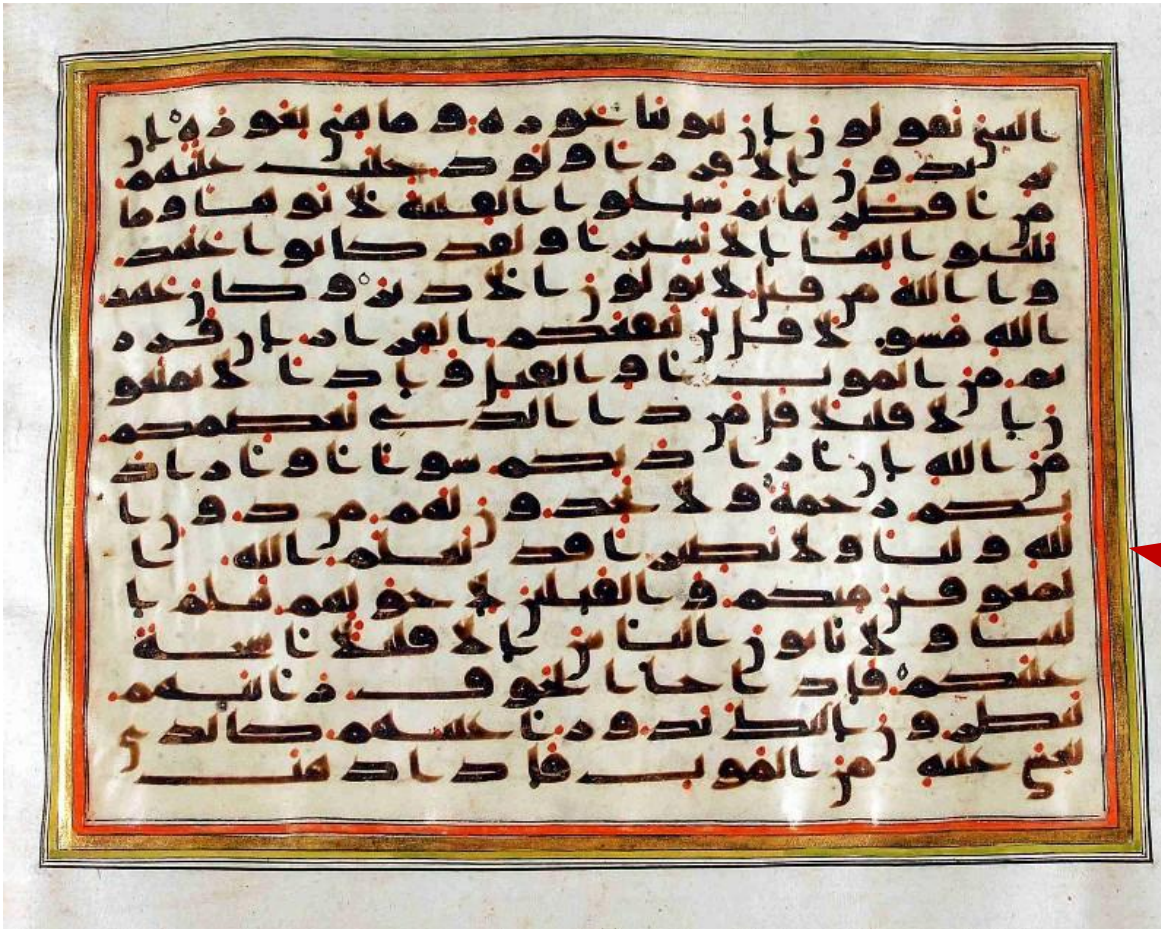 النبي يقولون ان بيوتنا عورة وما هي بعورة ان
يريدون الا فرارا ولو دخلت عليهم
من اقطرها ثم سئلوا الفتنة لاتوها وما
تلبثوا بها الا يسيرا ولقد كانوا عهد
وا الله من قبل لا يولون الادبر وكان عهد
الله مسولا قل لن ينفعكم الفرار ان فرر
تم من الموت او القتل واذا لا تمتعو
ن الا قليلا قل من ذا الذي يعصمكم
من الله ان اراد بكم سوا او اراد
بكم رحمة ولا يجدون لهم من دون ا
لله وليا ولا نصيرا قد يعلم الله ا
لمعوقين منكم والقيلين لاخونهم هلم ا
لينا ولا ياتون الباس الا قليلا اشحة
عليكم فاذا جا الخوف رايتهم
ينظرون اليك تدور اعينهم كالذي
يغشى عليه من الموت فاذا ذهب